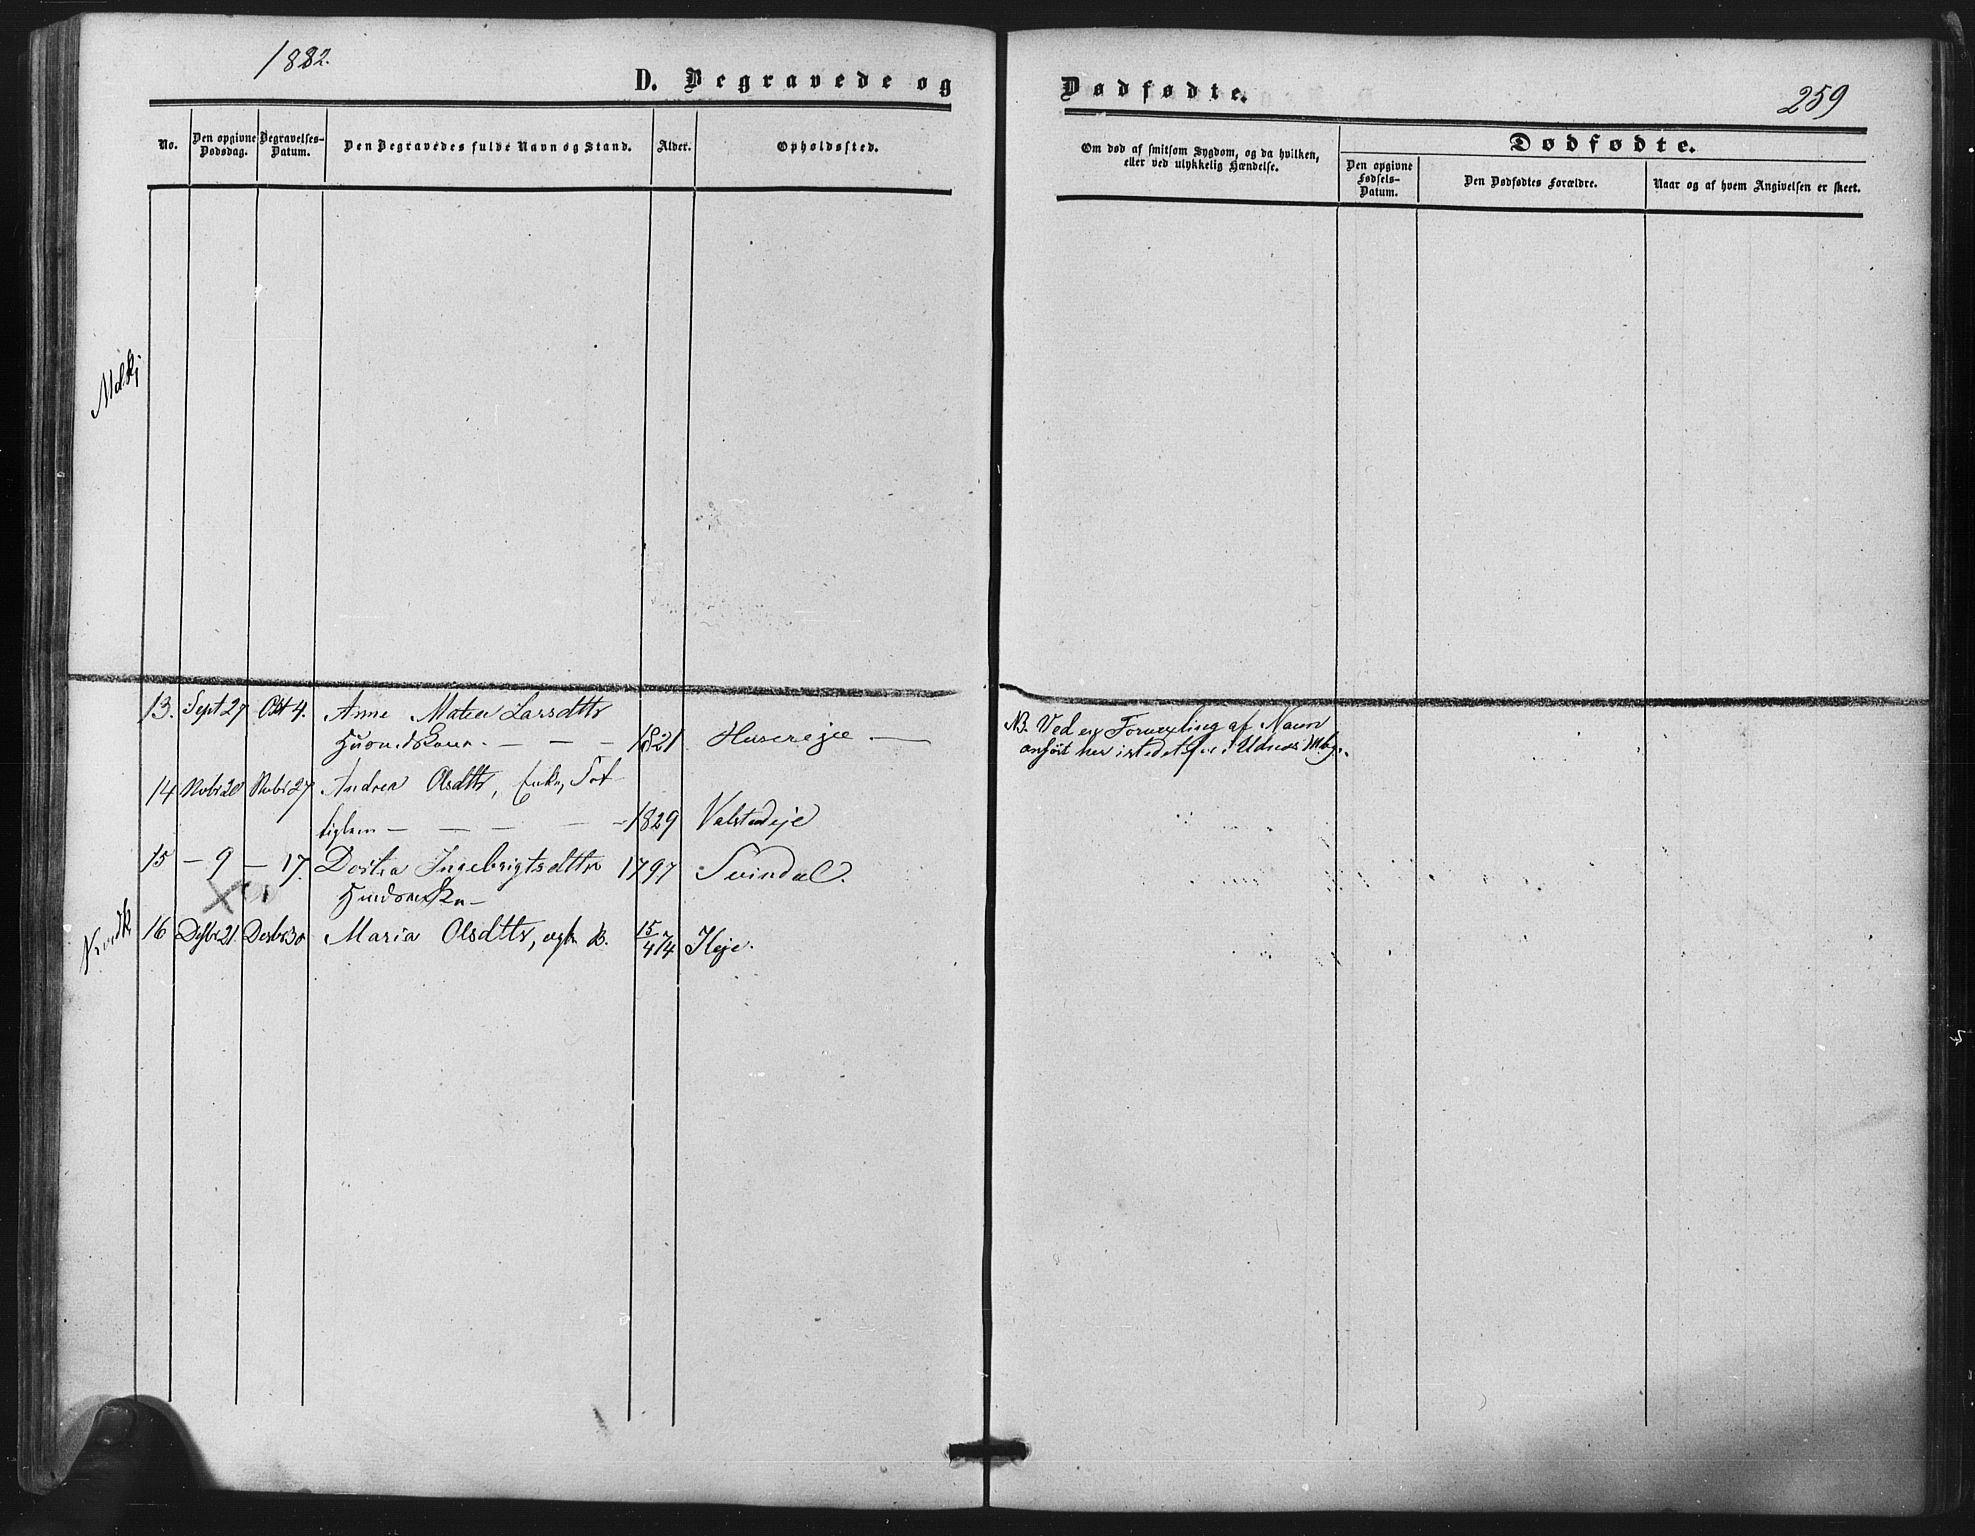 1882.
D. Begravede og
No.
Den opgivne Dødsdag.
Begravelses-Datum.
Den Begravedes fulde Navn og Stand.
Alder.
Opholdssted.
13. Sept 27 Okt 4. Anne Larsdttr
1821 Husereje
14 Nvbr 20 Nvbr 27 Andrea Olsdttr, Enke, Fat
tiglem 1829 Valstadeje
15 — 9 — 17. Ingebrigtsdttr 1797 Svindal.
16 Desbr 30 Maria Olsdttr, B. 15/4 74
Dødfødte.
259
Om død af smitsom Sygdom, og da hvilken,
eller ved ulykkelig Hændelse.
Dødfødte.
Den opgivne Fødsels-Datum.
Den Dødfødtes Forældre.
Naar og af hvem Angivelsen er skeet.
NB. Ved en Forvexling af Navn
anført her istedetfor i Udnes